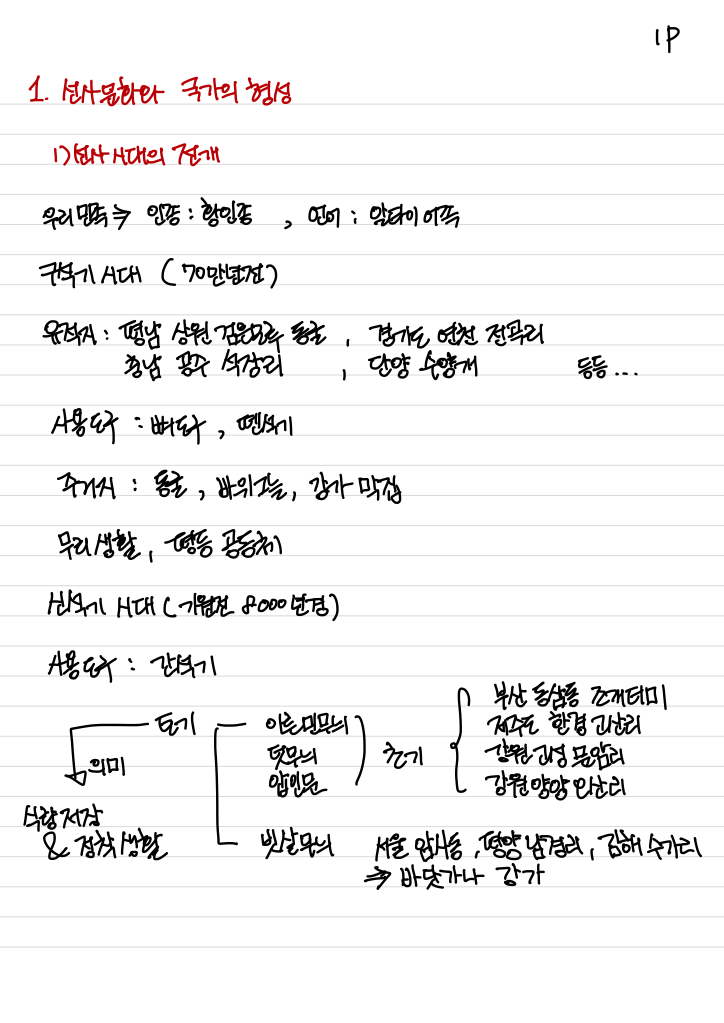 1P
1. 선사문화와 국가의 형성
1) 선사시대의 전개
우리 민족 ⇒ 인종 : 황인종 , 언어 : 알타이어족
구석기 시대 (70만년전)
유적지 : 평남 상원 검은모루 동굴 , 경기도 연천 전곡리
충남 공주 석장리 , 단양 수양개 등등...
사용도구 : 뼈도구 , 뗀석기
주거지 : 동굴 , 바위그늘 , 강가 막집
무리생활 , 평등 공동체
신석기 시대 (기원전 8000년경)
사용도구 : 간석기
토기
의미
식량저장
& 정착생활
이른민무늬
덧무늬
압인문
초기
부산 동삼동 조개더미
제주도 한경 고산리
강원 고성 문암리
강원 양양 오산리
빗살무늬 서울 암사동 , 평양 남경리 , 김해 수가리
⇒ 바닷가나 강가